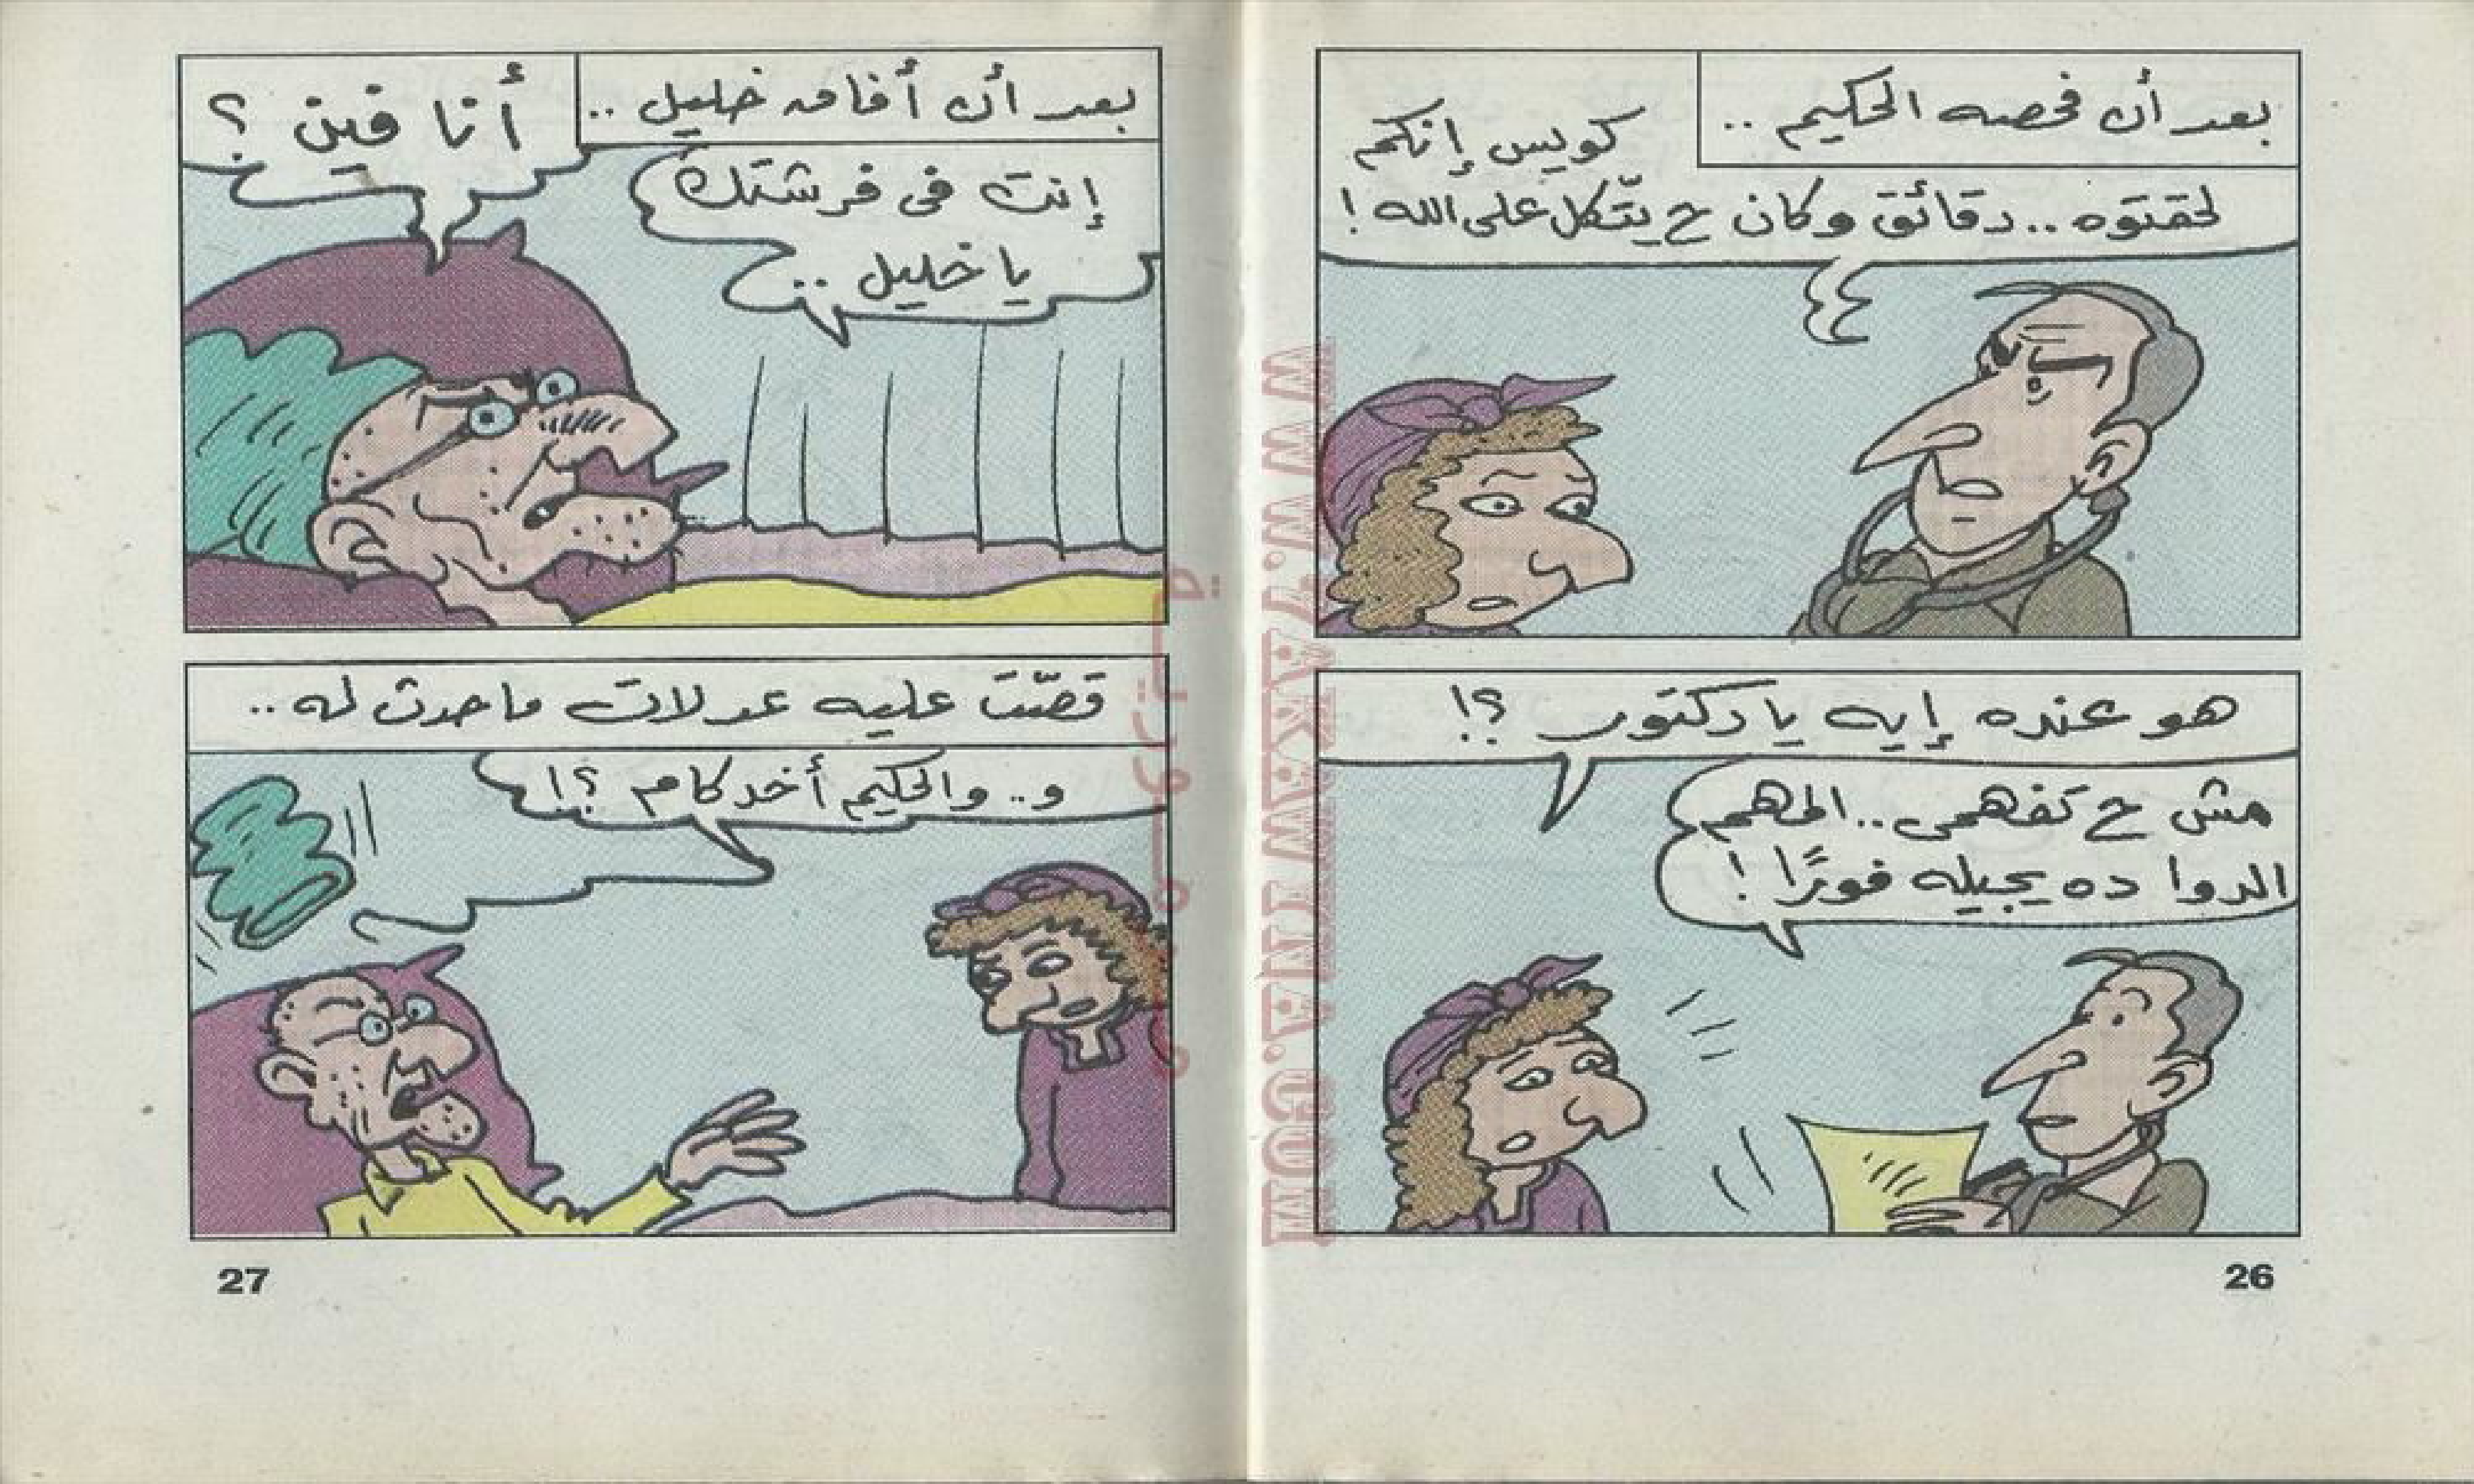 بعد أن فحصه الحكيم ..
كويس إنكم
لحقتوه .. دقائق وكان ح يتّكل على الله !
هو عنده إيه يا دكتور ؟!
مش ح تفهمى .. المهم
الدوا ده يجيله فورًا !
26
بعد أن أفاق خليل ..
أنا فين ؟
إنت فى فرشتك
يا خليل ..
قصّت عليه عدلات ما حدث له ..
و .. والحكيم أخد كام ؟!
27